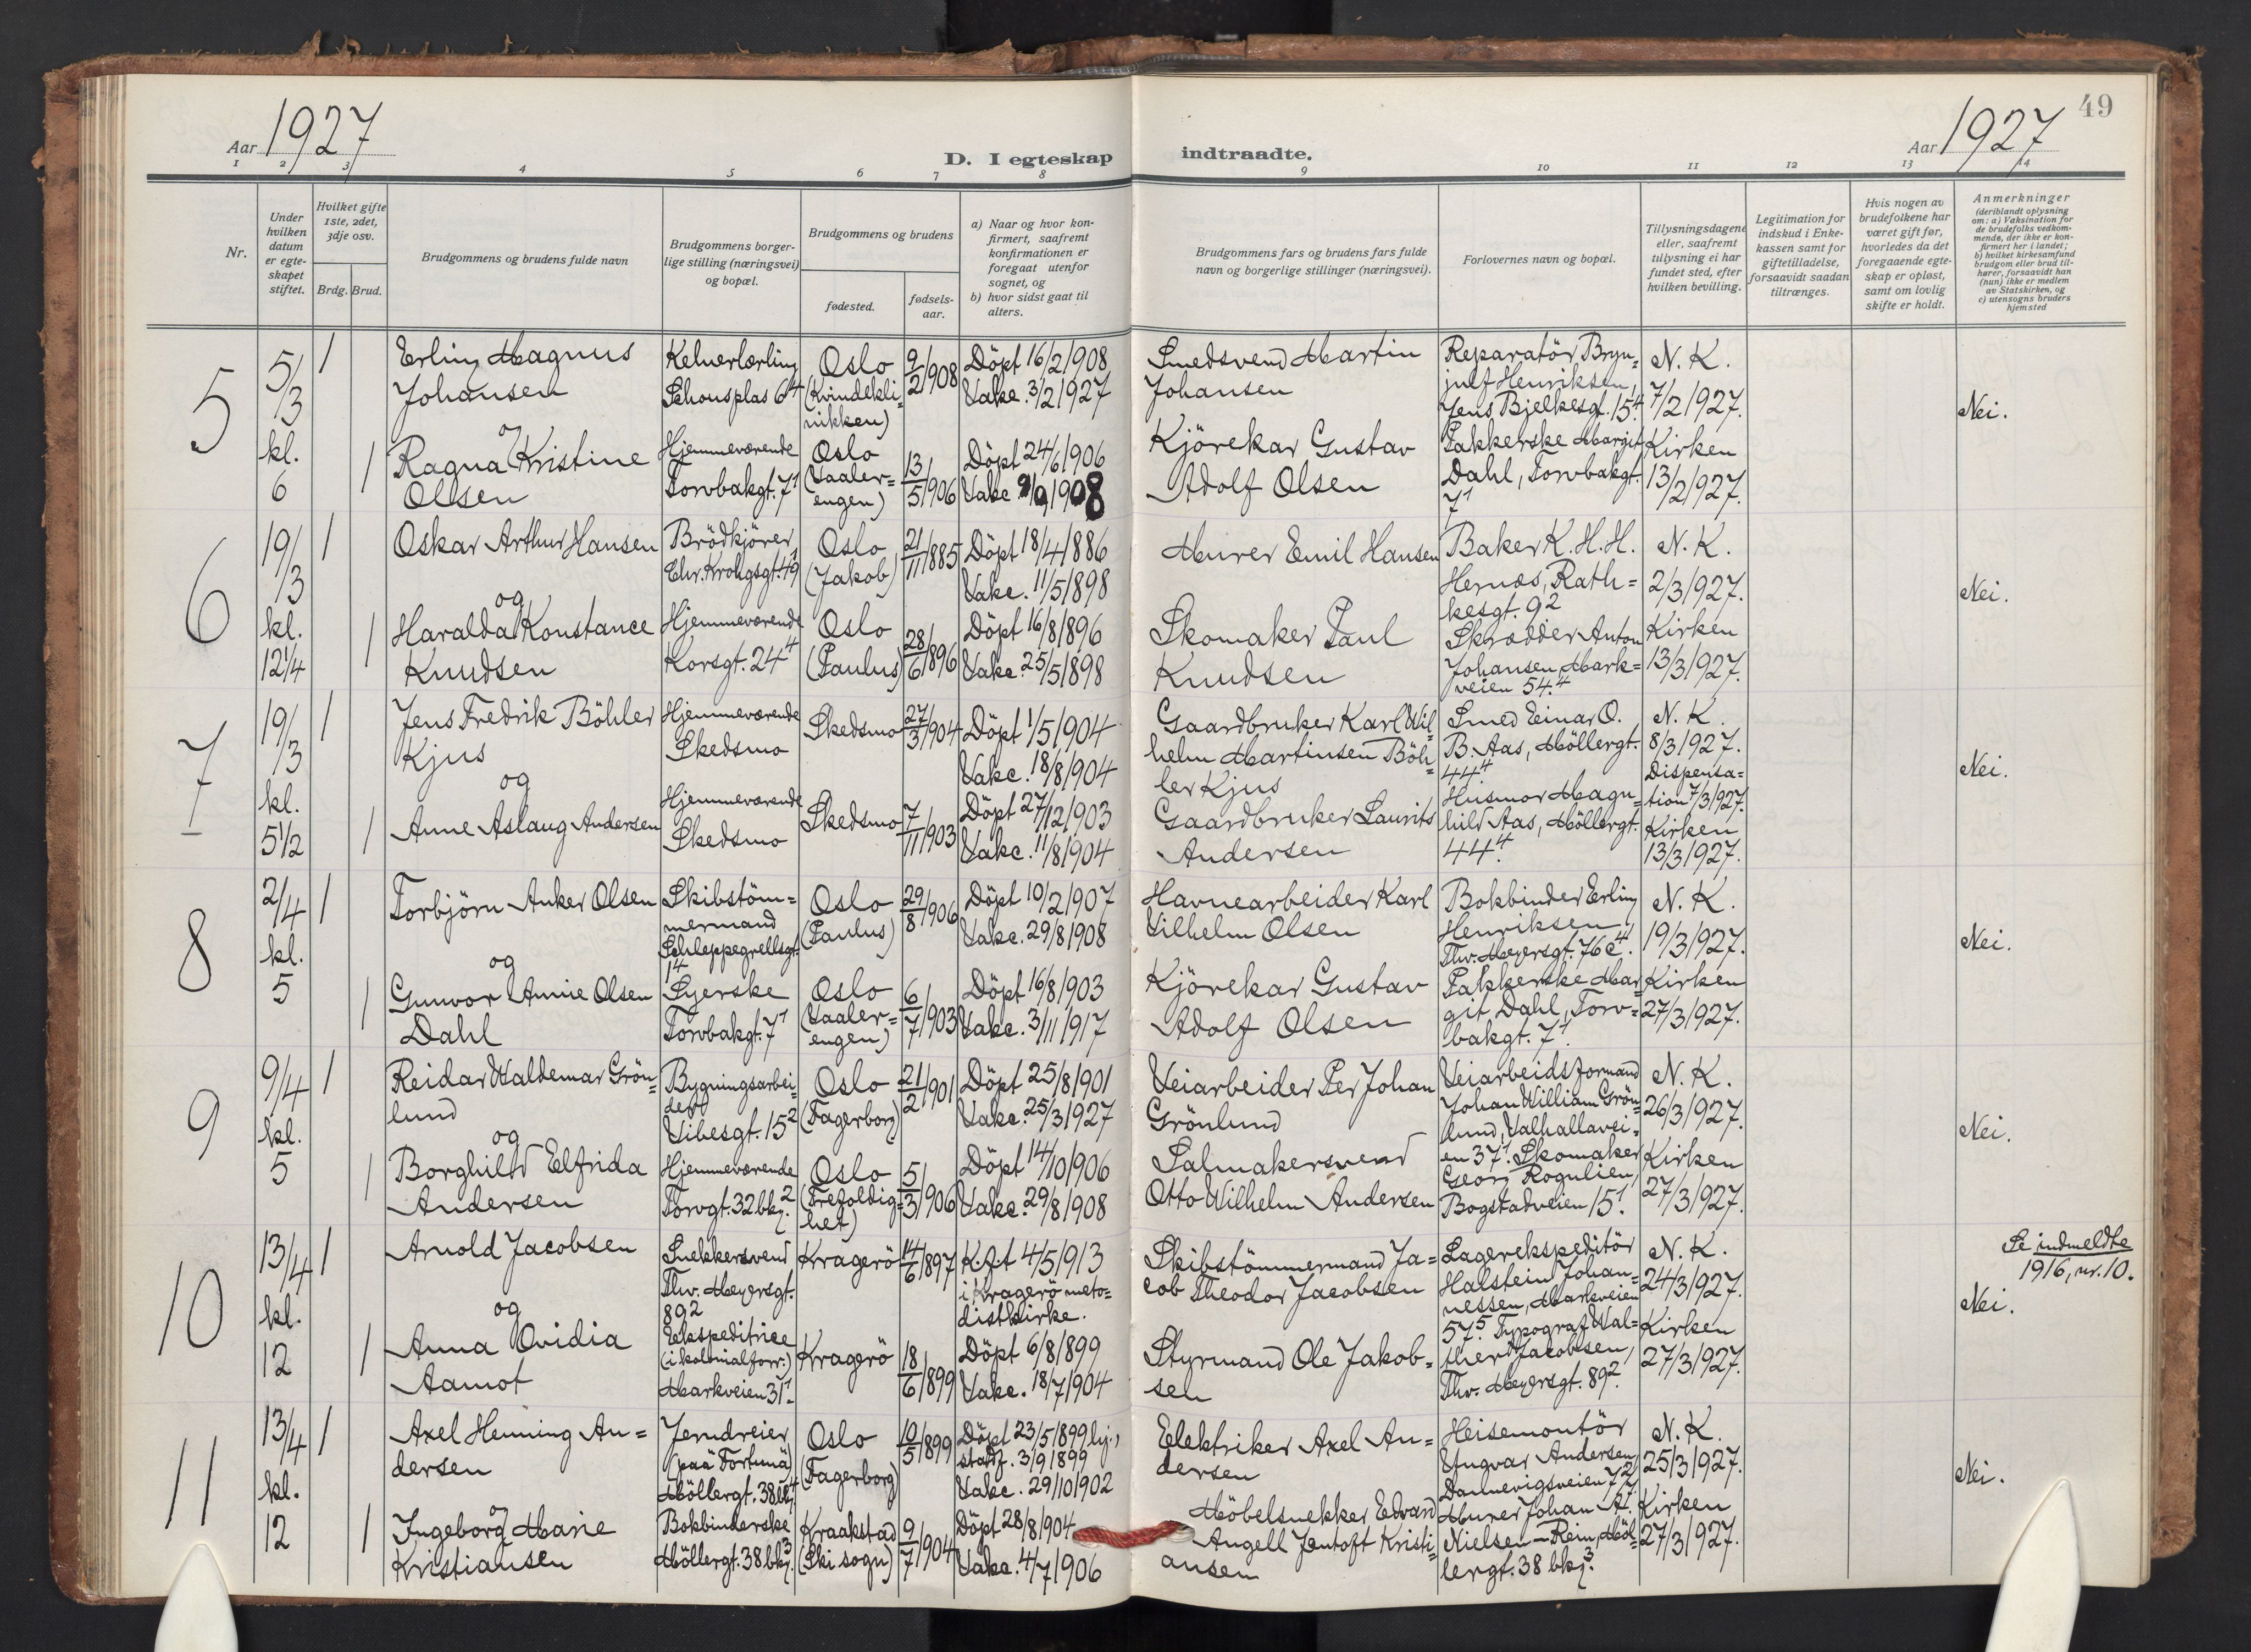 Aar 1927
D. I egteskap indtraadte.
Aar 1927
49
1 2 3 4 5 6 7 8 9 10 11 12 13 14
Nr.
Under hvilken datum er egteskapet stiftet.
Hvilket gifte 1ste, 2det, 3dje osv.
Brdg. Brud.
Brudgommens og brudens fulde navn
Brudgommens borgerlige stilling (næringsvei) og bopæl.
Brudgommens og brudens
fødested.
fødselsaar.
a) Naar og hvor konfirmert, saafremt konfirmationen er foregaat utenfor sognet, og
b) hvor sidst gaat til alters.
Brudgommens fars og brudens fars fulde navn og borgerlige stillinger (næringsvei).
Forlovernes navn og bopæl.
Tillysningsdagene eller, saafremt tillysning ei har fundet sted, efter hvilken bevilling.
Legitimation for indskud i Enkekassen samt for giftetilladelse, forsaavidt saadan tiltrænges.
Hvis nogen av brudefolkene har været gift før, hvorledes da det foregaaende egteskap er opløst, samt om lovlig skifte er holdt.
Anmerkninger
(deriblandt oplysning om: a) Vaksination for de brudefolks vedkommende, der ikke er konfirmert her i landet; b) hvilket kirkesamfund brudgom eller brud tilhører, forsaavidt han (hun) ikke er medlem av Statskirken, og c) utensogns bruders hjemsted
5
5/3 kl. 6
1
Erling Magnus
Johansen
og
Kelnerlærling
Schousplas 6⁴
Oslo
(Kvindekli-
nikken)
9/2 1908
Döpt 16/2 1908
Vakc. 3/2 1927
Smedsvend Martin
Johansen
Reparatör Bryn-
julf Henriksen,
Jens Bjelkesgt. 15⁴.
N. K.
7/2 1927.
Nei.
1
Ragna Kristine
Olsen
Hjemmeværende
Torvbakgt. 7¹
Oslo
(Vaaler-
engen)
13/5 1906
Döpt 24/6 1906
Vakc. 9/9 1908
Kjörekar Gustav
Adolf Olsen
Pakkerske Margit
Dahl, Torvbakgt.
7¹
Kirken
13/2 1927.
6
19/3 kl. 12 1/4
1
Oskar Arthur Hansen
og
Brödkjörer
Chr. Krohgsgt. 49¹
Oslo
(Jakob)
21/11 1885
Döpt 18/4 1886
Vakc. 11/5 1898
Murer Emil Hansen
Baker K. H. H.
Hernæs, Rath-
kesgt. 9²
N. K.
2/3 1927.
Nei.
1
Haralda Konstance
Knudsen
Hjemmeværende
Korsgt. 24⁴
Oslo
(Paulus)
28/6 1896
Döpt 16/8 1896
Vakc. 25/5 1898
Skomaker Paul
Knudsen
Skrædder Anton
Johansen, Mark-
veien 54⁴.
Kirken
13/3 1927.
7
19/3 kl. 5 1/2
1
Jens Fredrik Böhler
Kjus
og
Hjemmeværende
Skedsmo
Skedsmo
27/3 1904
Döpt 1/5 1904
Vakc. 18/8 1904
Gaardbruker Karl Wil-
helm Martinsen Böh-
ler Kjus
Smed Einar O.
B. Aas, Möllergt.
44⁴.
N. K.
8/3 1927.
Dispensa-
tion 7/3 1927.
Nei.
1
Anne Aslaug Andersen
Hjemmeværende
Skedsmo
Skedsmo
7/11 1903
Döpt 27/12 1903
Vakc. 11/8 1904
Gaardbruker Laurits
Andersen
Husmor Magn-
hild Aas, Möllergt.
44⁴.
Kirken
13/3 1927.
8
2/4 kl. 5
1
Torbjörn Anker Olsen
og
Skibstöm-
mermand
Schleppegrellsgt.
14
Oslo
(Paulus)
29/8 1906
Döpt 10/2 1907
Vakc. 29/8 1908
Havnearbeider Karl
Vilhelm Olsen
Bokbinder Erling
Henriksen,
Thv. Meyersgt. 76c⁴.
N. K.
19/3 1927.
Nei.
1
Gunvor Annie Olsen
Dahl
Syerske
Torvbakgt. 7¹
Oslo
(Vaaler-
engen)
6/7 1903
Döpt 16/8 1903
Vakc. 3/11 1917
Kjörekar Gustav
Adolf Olsen
Pakkerske Mar-
git Dahl, Torv-
bakgt. 7¹.
Kirken
27/3 1927.
9
9/4 kl. 5
1
Reidar Waldemar Grön-
lund
og
Bygningsarbei-
der
Vibesgt. 15²
Oslo
(Fagerborg)
21/2 1901
Döpt 25/8 1901
Vakc. 25/3 1927
Veiarbeider Per Johan
Grönlund
Veiarbeidsformand
Johan William Grön-
lund, Valhallavei-
en 37¹. Skomaker
N. K.
26/3 1927.
Nei.
1
Borghild Elfrida
Andersen
Hjemmeværende
Torvgt. 32 bkg.²
Oslo
(Trefoldig-
het)
5/3 1906
Döpt 14/10 1906
Vakc. 29/8 1908
Salmakersvend
Otto Wilhelm Andersen
Georg Rogulien,
Bogstadveien 15¹.
Kirken
27/3 1927.
10
13/4 kl. 12
1
Arnold Jacobsen
og
Snekkersvend
Thv. Meyersgt.
89²
Kragerö
14/6 1897
K.f.t 4/5 1913
i Kragerö meto-
distkirke.
Skibstömmermand Ja-
cob Theodor Jacobsen
Lagerekspeditör
Halstein Johan-
nessen, Markveien
57⁵. Typograf Wal-
N. K.
24/3 1927.
Se indmeldte
1916, nr. 10.
Nei.
1
Anna Ovidia
Aamot
Ekspeditrice
(i kolonialforr.)
Markveien 31¹
Kragerö
18/6 1899
Döpt 6/8 1899
Vakc. 18/7 1904
Styrmand Ole Jakob-
sen
ther Jacobsen,
Thv. Meyersgt. 89².
Kirken
27/3 1927.
11
13/4 kl. 12
1
Axel Henning An-
dersen
og
Jerndreier
(paa Fortuna)
Möllergt. 38 bkg.
Oslo
(Fagerborg)
10/5 1899
Döpt 23/5 1899 hj.,
stadf. 3/9 1899
Vakc. 29/10 1902
Elektriker Axel An-
dersen
Heisemontör
Yngvar Andersen,
Dannevigsveien 7²
N. K.
25/3 1927.
Nei.
1
Ingeborg Marie
Kristiansen
Bokbinderske
Möllergt. 38 bkg.³
Kraakstad
(Ski sogn)
9/7 1904
Döpt 28/8 1904
Vakc. 4/7 1906
Möbelsnekker Edvard
Angell Jentoft Kristi-
ansen
Murer Johan A.
Nielsen-Rein, Möl-
lergt. 38 bkg.³
Kirken
27/3 1927.